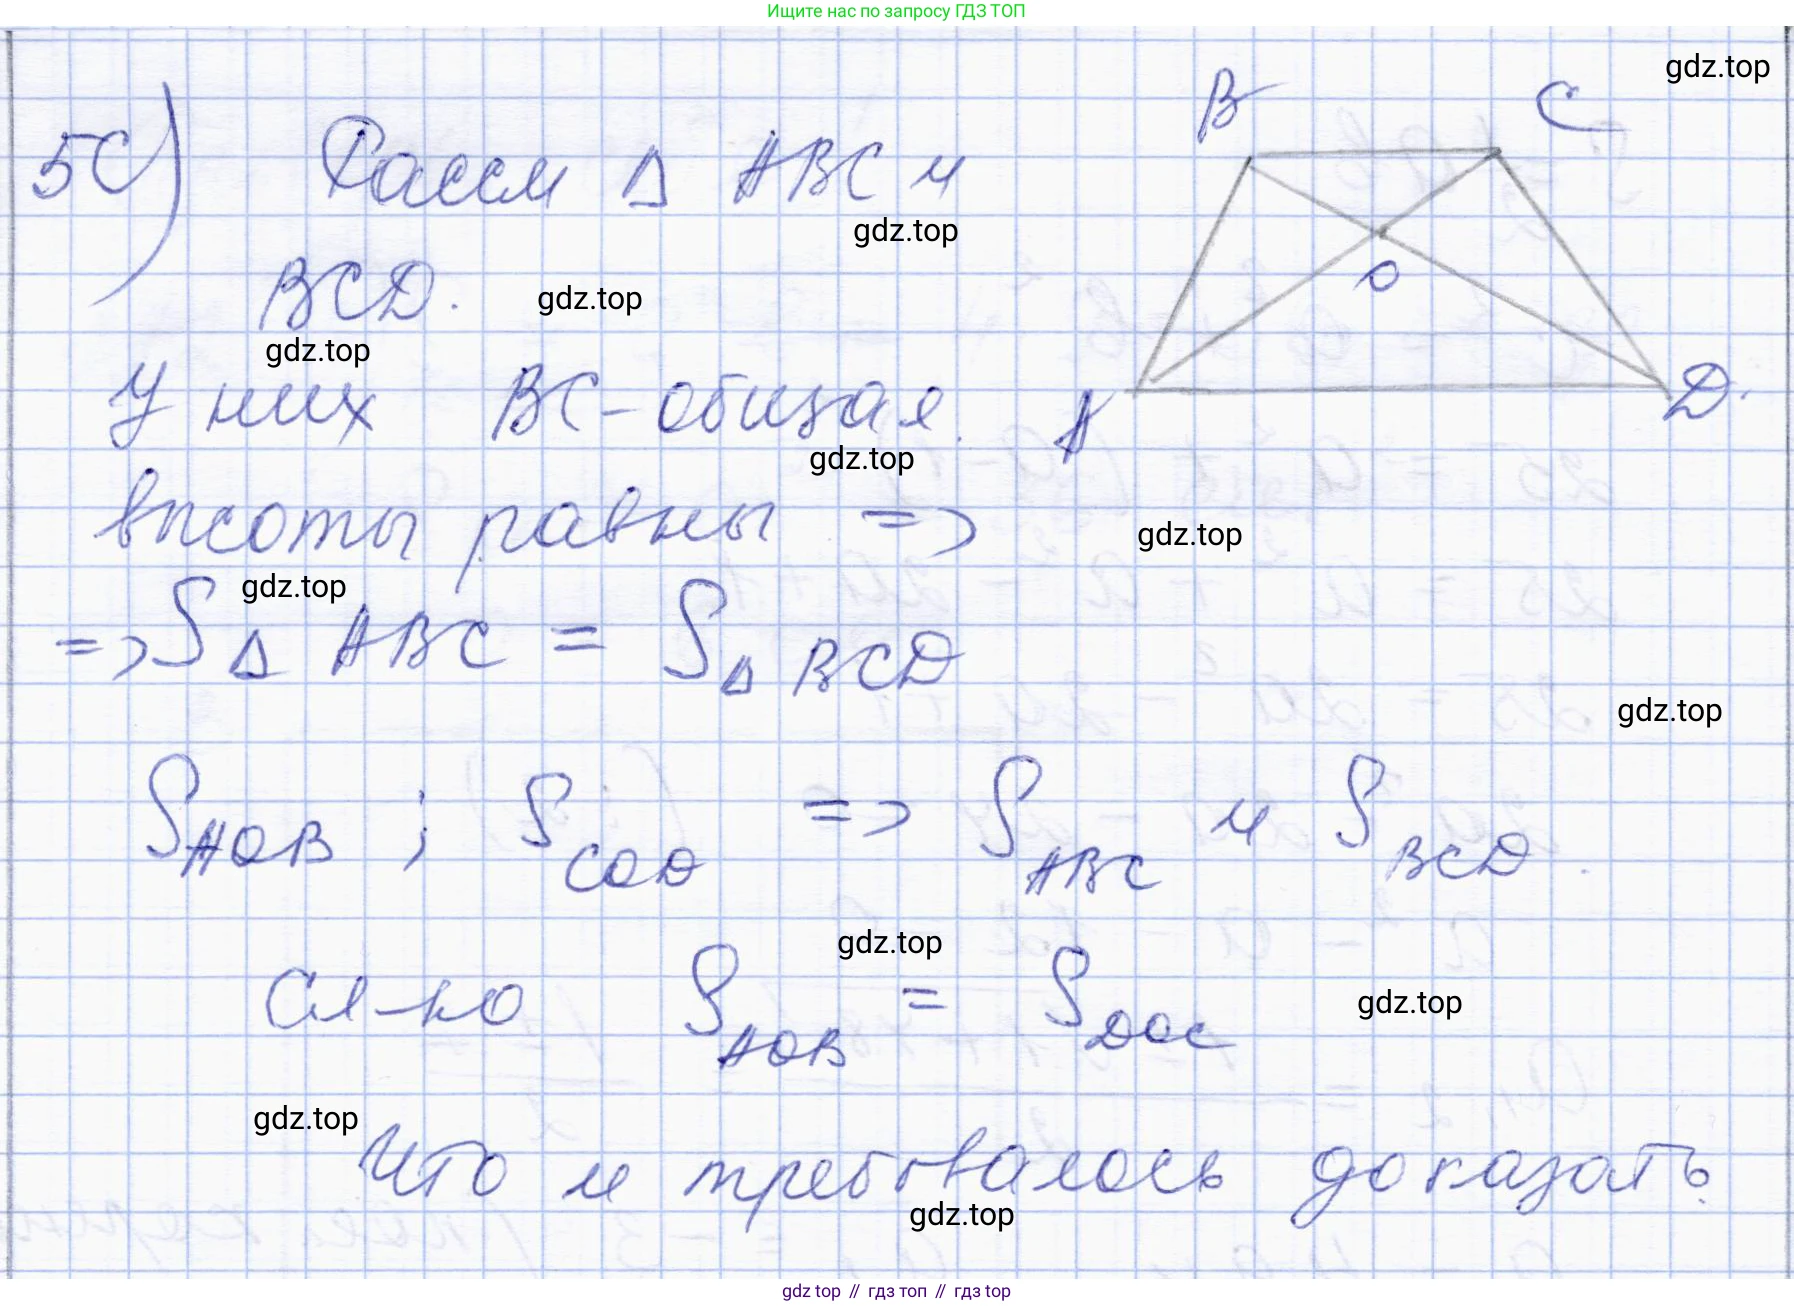 Ищите нас по запросу ГДЗ ТОП
gdz.top
B C
5С) Рассм Δ ABC и
gdz.top
O
BCD.
gdz.top
gdz.top
У них BC - общая.
A D.
gdz.top
высоты равны =>
gdz.top
gdz.top
=> S Δ ABC = S Δ BCD
gdz.top
S AOB ; S COD => S ABC и S BCD.
gdz.top
Сл-но S AOB = S DOC
gdz.top
gdz.top
Что и требовалось доказать.
gdz.top
gdz top // гдз топ // гдз top